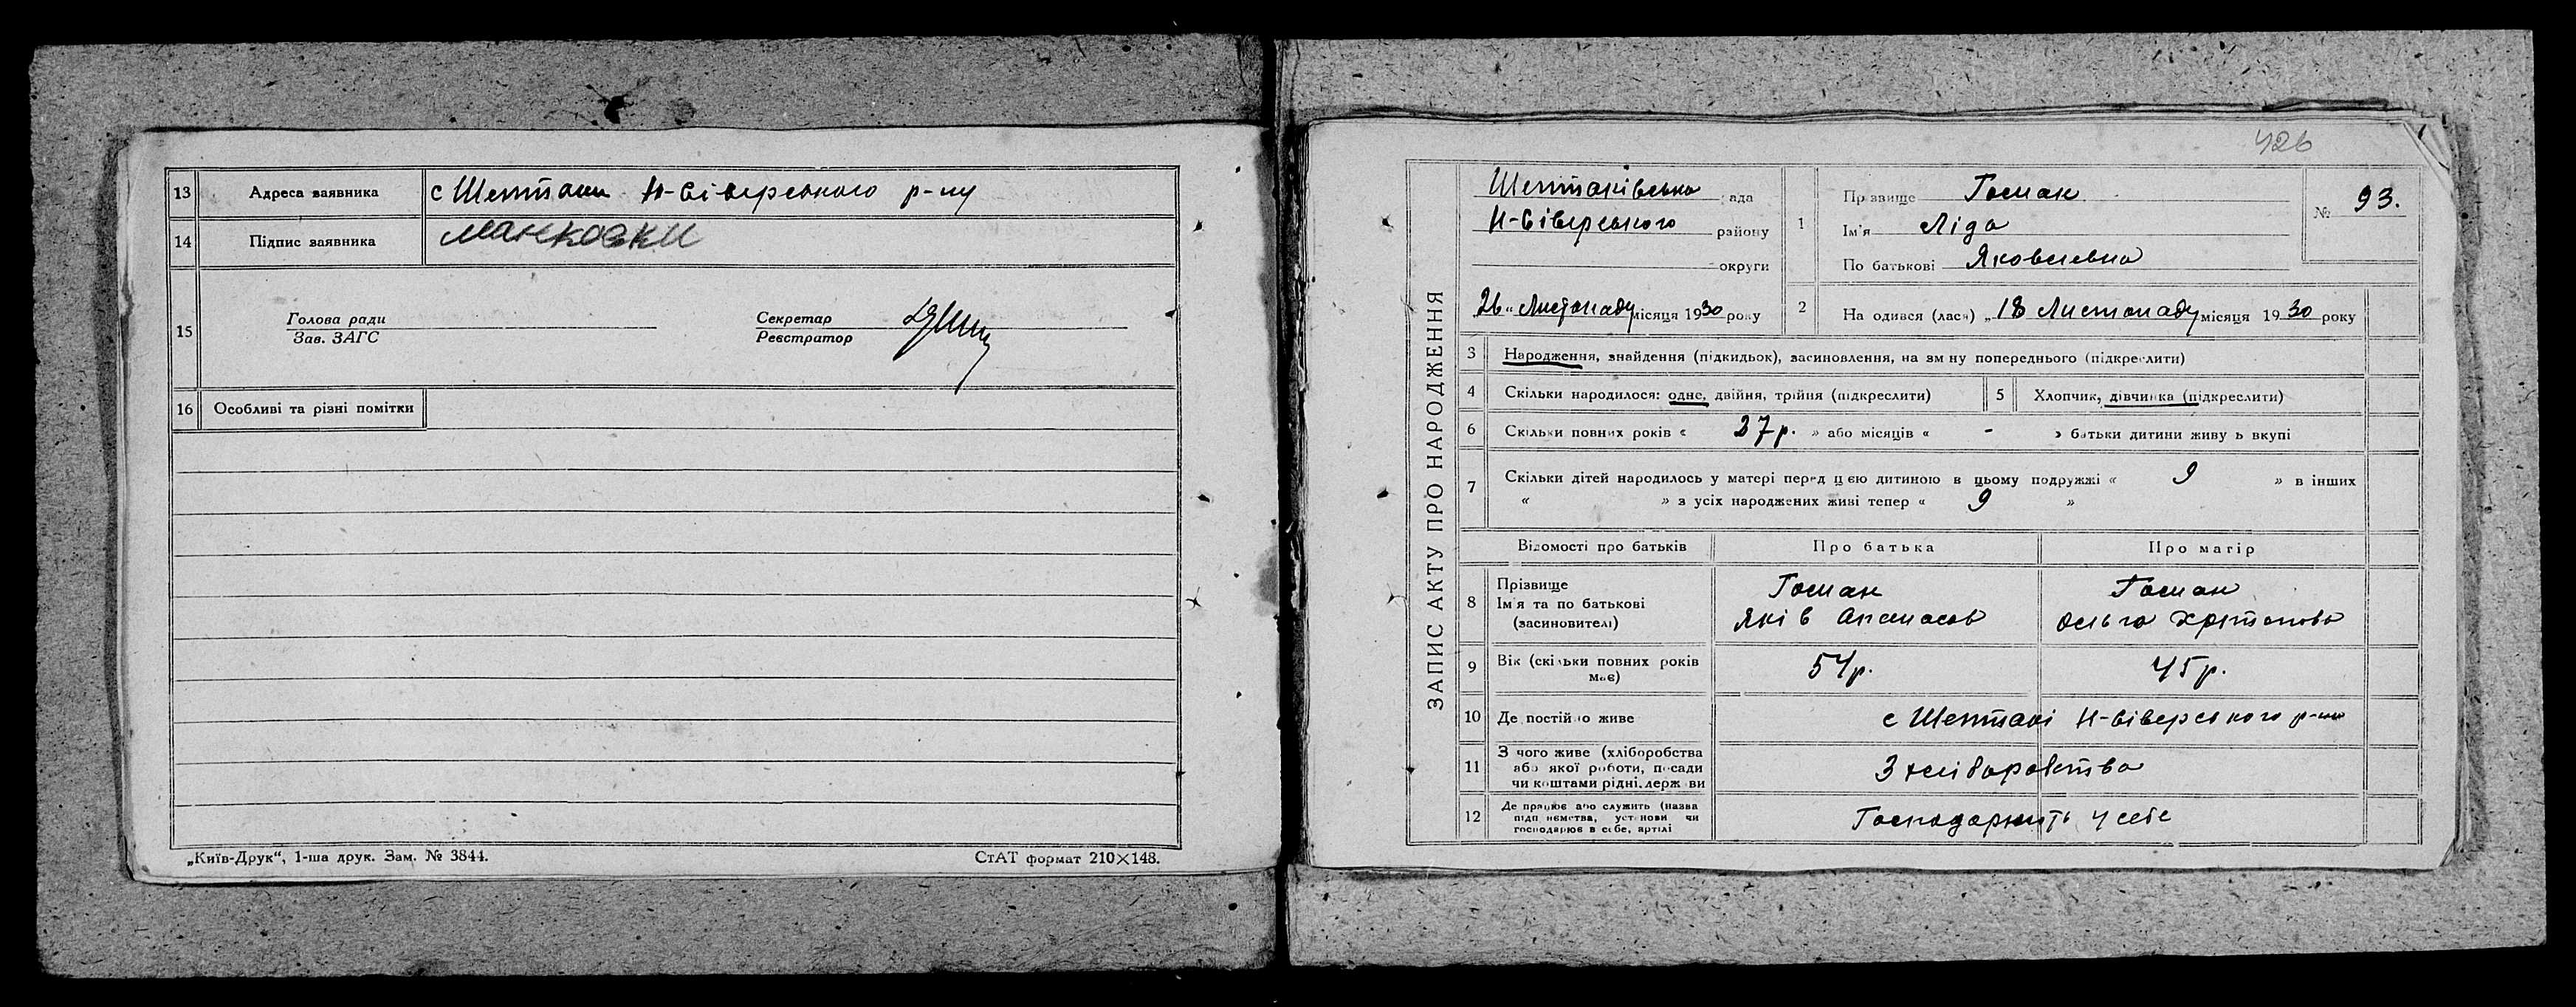 13 Адреса заявника с Шептаки Н-Сіверського р-ну
14 Підпис заявника
15 Голова ради
Зав. ЗАГС
Секретар
Реєстратор
16 Особливі та різні помітки
„Київ-Друк“, 1-ша друк. Зам. № 3844.
СтАТ формат 210×148.
426
ЗАПИС АКТУ ПРО НАРОДЖЕННЯ
Шептаківська рада
Н-Сіверського району
округи
26 „ Листопаду місяця 1930 року
1 Прізвище Гомак
Ім'я Ліда
По батькові Яковлевна
№ 93.
2 На одився (лася) „ 18 Листопаду місяця 1930 року
3 Народження, знайдення (підкидьок), засиновлення, на зм ну попереднього (підкреслити)
4 Скільки народилося: одне, двійня, трійня (підкреслити)
5 Хлопчик, дівчинка (підкреслити)
6 Скільки повних років « 27 р. » або місяців « - » батьки дитини живу ь вкупі
7 Скільки дітей народилось у матері перед цією дитиною в цьому подружжі « 9 » в інших
« » з усіх народжених живі тепер « 9 »
Відомості про батьків Про батька Про матір
8 Прізвище Гомак Гомак
Ім'я та по батькові Яків Апанасов Ольга
(засновителі)
9 Вік (скільки повних років 54р. 45р.
має)
10 Де постійно живе с Шептакі Н-Сіверського р-ну
11 З чого живе (хліборобства
або якої роботи, посади З хліборобства
чи коштами рідні, держ ви
12 Де працює або служить (назва
підп иємства, установи чи Господарюють у себе
господарює в себе, артілі